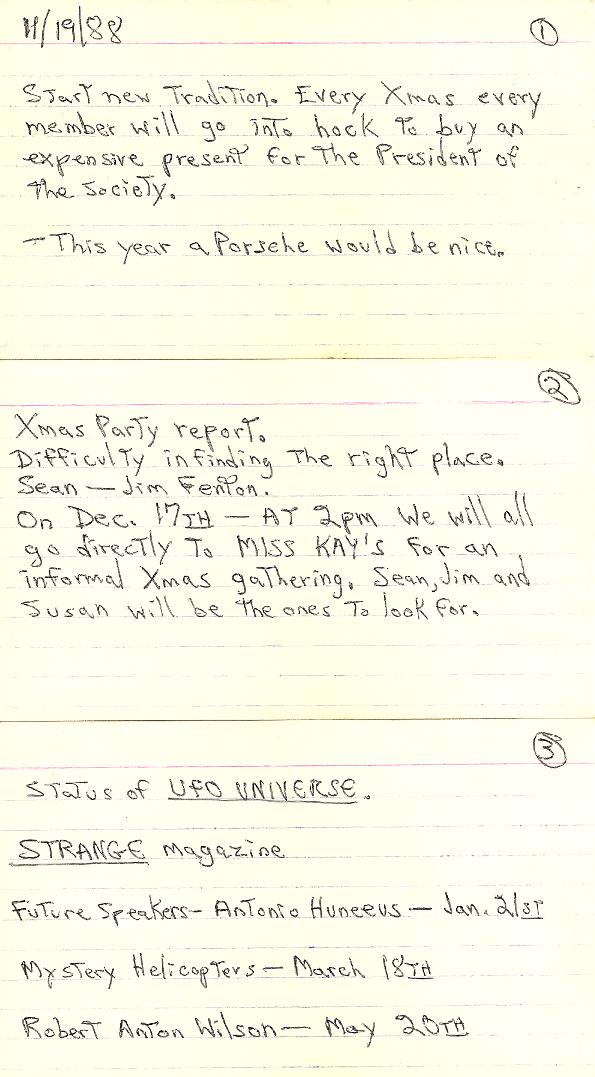 11/19/88
1
Start new Tradition. Every Xmas every
member will go into hock to buy an
expensive present for The President of
the Society.
- This year a Porsche would be nice.
2
Xmas Party report.
Difficulty in finding The right place.
Sean - Jim Fenton.
On Dec. 17TH - AT 2pm We will all
go directly To MISS KAY'S for an
informal Xmas gathering. Sean, Jim and
Susan will be the ones To look for.
3
Status of UFO UNIVERSE.
STRANGE magazine
Future Speakers - Antonio Huneeus - Jan. 21ST
Mystery Helicopters - March 18TH
Robert Anton Wilson - May 20TH